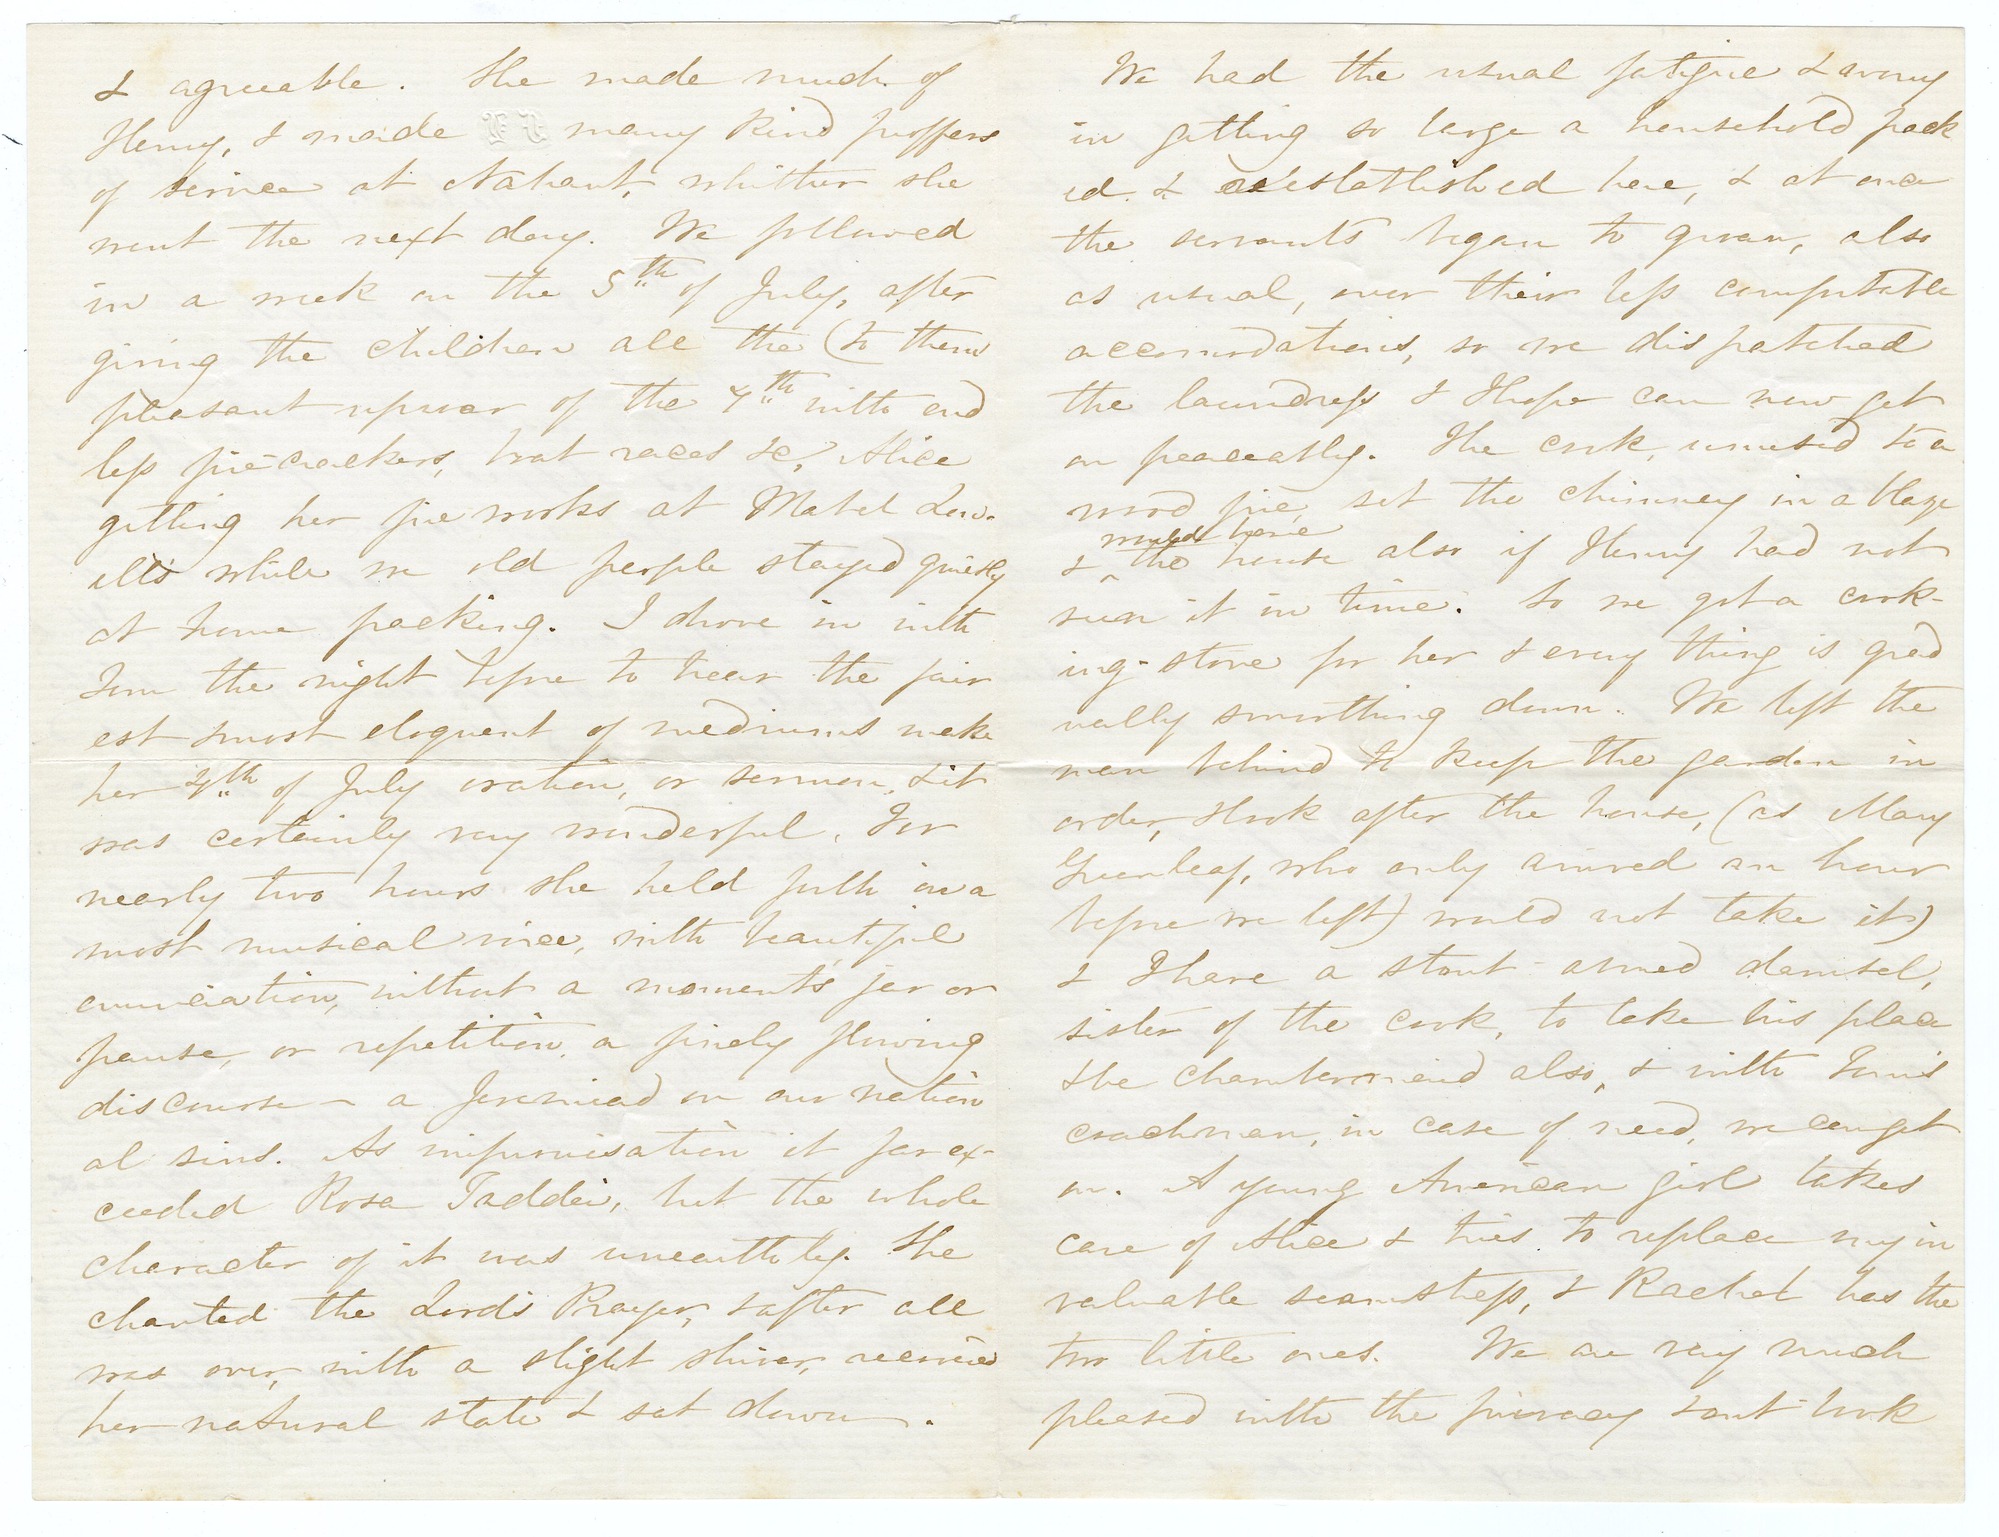 & agreeable. She made much of
Henry, & made many kind proffers
of service at Nahant, whither she
went the next day. We followed
in a week on the 5th of July, after
giving the children all the (to them
pleasant uproar of the 4th with end
less fire-crackers, boat races &c, Alice
getting her fire works at Mabel Low-
ell's while we old people stayed quietly
at home packing. I drove in with
Tom the night before to hear the fair
est & most eloquent of mediums make
her 4th of July oration, or sermon, & it
was certainly very wonderful. For
nearly two hours she held forth in a
most musical voice, with beautiful
enunciation, without a moment's jar or
pause, or repetition, a finely flowing
discourse - a Jeremiad on our nation
al sins. As improvisation it far ex-
ceeded Rosa Taddei, but the whole
character of it was unearthly. She
chanted the Lord's Prayer, & after all
was over, with a slight shiver, received
her natural state & sat down.
We had the usual fatigue & worry
in getting so large a household pack
ed & established here, & at once
the servants began to groan, also
as usual, over their less comfortable
accomodations, so we dispatched
the laundress & I hope can now get
on peaceably. The cook, unused to a
wood fire, set the chimney in a blaze
would have
& the house also if Henry had not
seen it in time. So we got a cook-
ing-stove for her & every thing is grad
ually smoothing down. We left the
man behind to keep the garden in
order, & look after the house, (as Mary
Greenleaf, who only arrived an hour
before we left) would not take it)
& I have a stout-armed damsel,
sister of the cook, to take his place
& the chambermaid also, & with Tom's
coachman, in case of need, we can get
on. A young American girl takes
care of Alice & tries to replace my in
valuable seamstress, & Rachel has the
two little ones. We are very much
pleased with the privacy & out-look